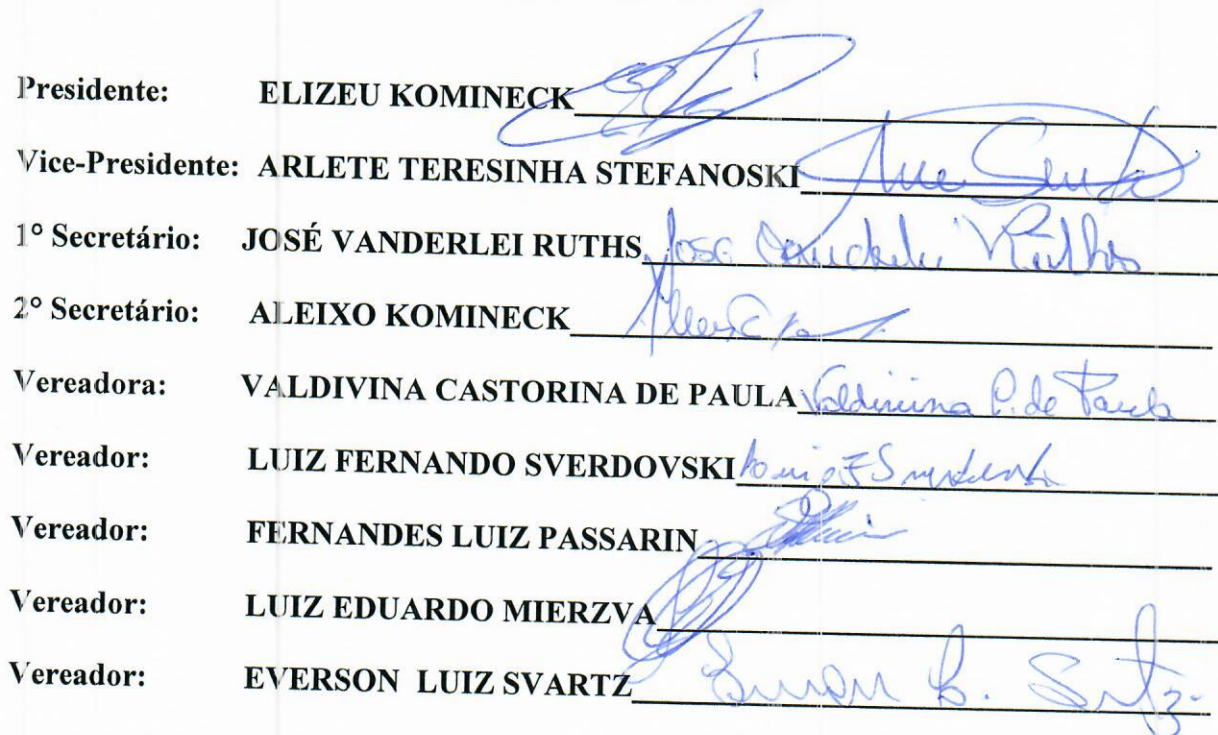 Presidente: ELIZEU KOMINECK
Vice-Presidente: ARLETE TERESINHA STEFANOSKI
1º Secretário: JOSÉ VANDERLEI RUTHS Jose Vanderlei Ruths
2º Secretário: ALEIXO KOMINECK
Vereadora: VALDIVINA CASTORINA DE PAULA Valdivina C. de Paula
Vereador: LUIZ FERNANDO SVERDOVSKI
Vereador: FERNANDES LUIZ PASSARIN
Vereador: LUIZ EDUARDO MIERZVA
Vereador: EVERSON LUIZ SVARTZ